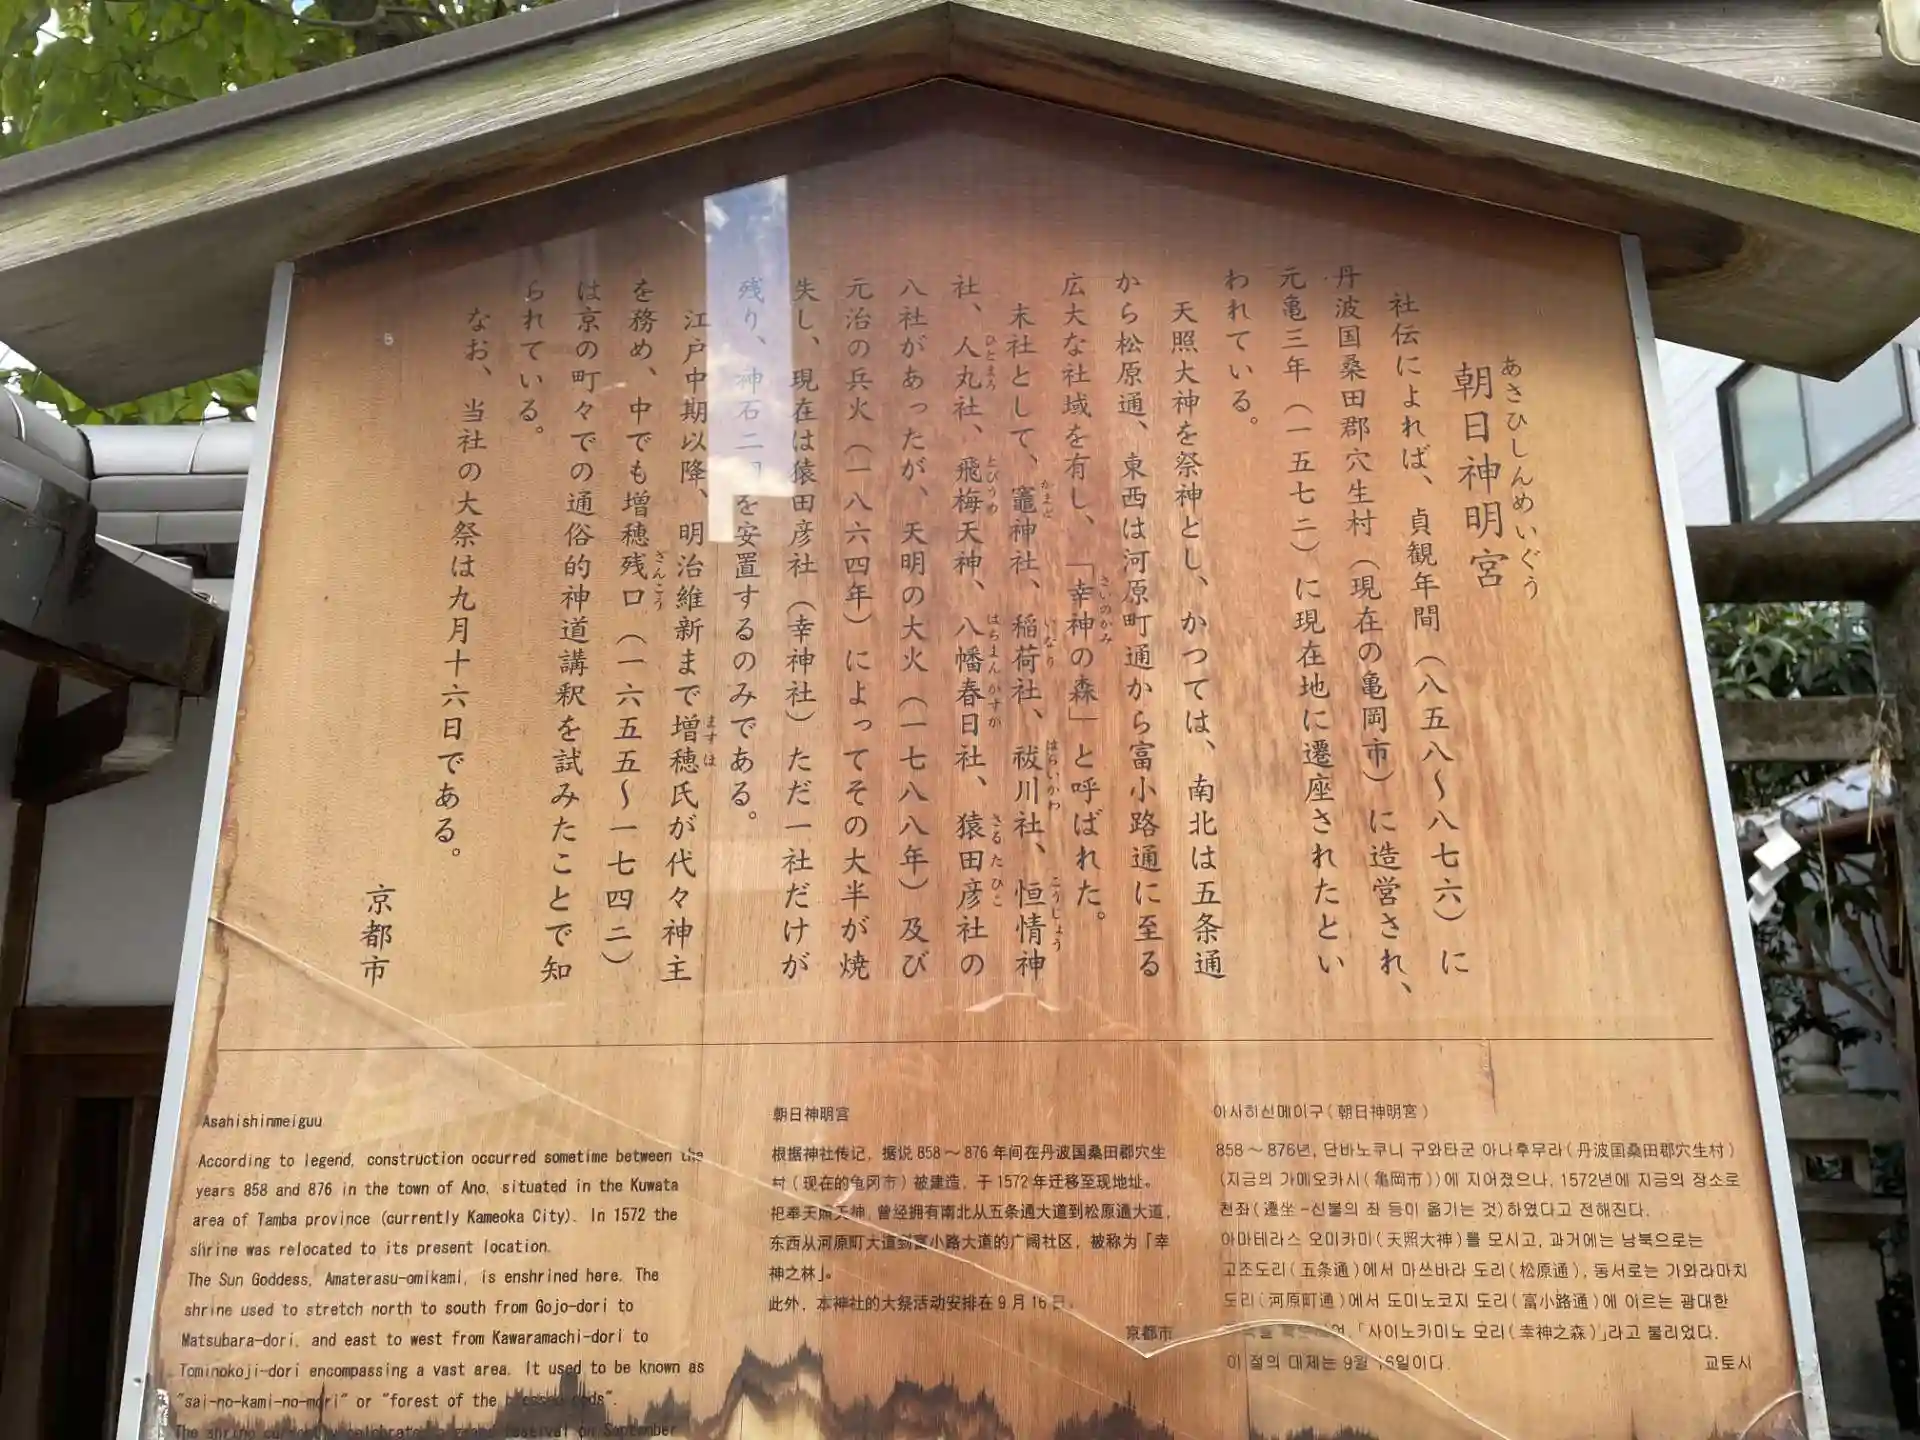 あさひしんめいぐう
朝日神明宮
社伝によれば、貞観年間（八五八〜八七六）に
丹波国桑田郡穴生村（現在の亀岡市）に造営され、
元亀三年（一五七二）に現在地に遷座されたとい
われている。
天照大神を祭神とし、かつては、南北は五条通
から松原通、東西は河原町通から富小路通に至る
広大な社域を有し、「幸神の森」と呼ばれた。
さいのかみ
末社として、竈神社、稲荷社、祓川社、恒情神
かまど いなり はらいかわ こうじょう
社、人丸社、飛梅天神、八幡春日社、猿田彦社の
ひとまろ とびうめ はちまんかすが さるたひこ
八社があったが、天明の大火（一七八八年）及び
元治の兵火（一八六四年）によってその大半が焼
失し、現在は猿田彦社（幸神社）ただ一社だけが
残り、神石二を安置するのみである。
江戸中期以降、明治維新まで増穂氏が代々神主
ますほ
を務め、中でも増穂残口（一六五五〜一七四二）
ざんこう
は京の町々での通俗的神道講釈を試みたことで知
られている。
なお、当社の大祭は九月十六日である。
京都市
Asahishinmeiguu
According to legend, construction occurred sometime between the
years 858 and 876 in the town of Ano, situated in the Kuwata
area of Tamba province (currently Kameoka City). In 1572 the
shrine was relocated to its present location.
The Sun Goddess, Amaterasu-omikami, is enshrined here. The
shrine used to stretch north to south from Gojo-dori to
Matsubara-dori, and east to west from Kawaramachi-dori to
Tominokoji-dori encompassing a vast area. It used to be known as
"sai-no-kami-no-mori" or "forest of the
The shrine festival on September
朝日神明宮
根据神社传记，据说858～876年间在丹波国桑田郡穴生
村（现在的龟冈市）被建造，于1572年迁移至现地址。
祀奉天照大神，曾经拥有南北从五条通大道到松原通大道，
东西从河原町大道到富小路大道的广阔社区，被称为「幸
神之林」。
此外，本神社的大祭活动安排在9月16日。
京都市
아사히신메이구(朝日神明宮)
858～876년, 단바노쿠니 구와타군 아나후무라(丹波国桑田郡穴生村)
(지금의 가메오카시(亀岡市))에 지어졌으나, 1572년에 지금의 장소로
천좌(遷坐-신불의 좌 등이 옮기는 것)하였다고 전해진다.
아마테라스 오미카미(天照大神)를 모시고, 과거에는 남북으로는
고조도리(五条通)에서 마쓰바라 도리(松原通), 동서로는 가와라마치
도리(河原町通)에서 도미노코지 도리(富小路通)에 이르는 광대한
「사이노카미노 모리(幸神之森)」라고 불리었다.
이 절의 대제는 9월 16일이다.
교토시